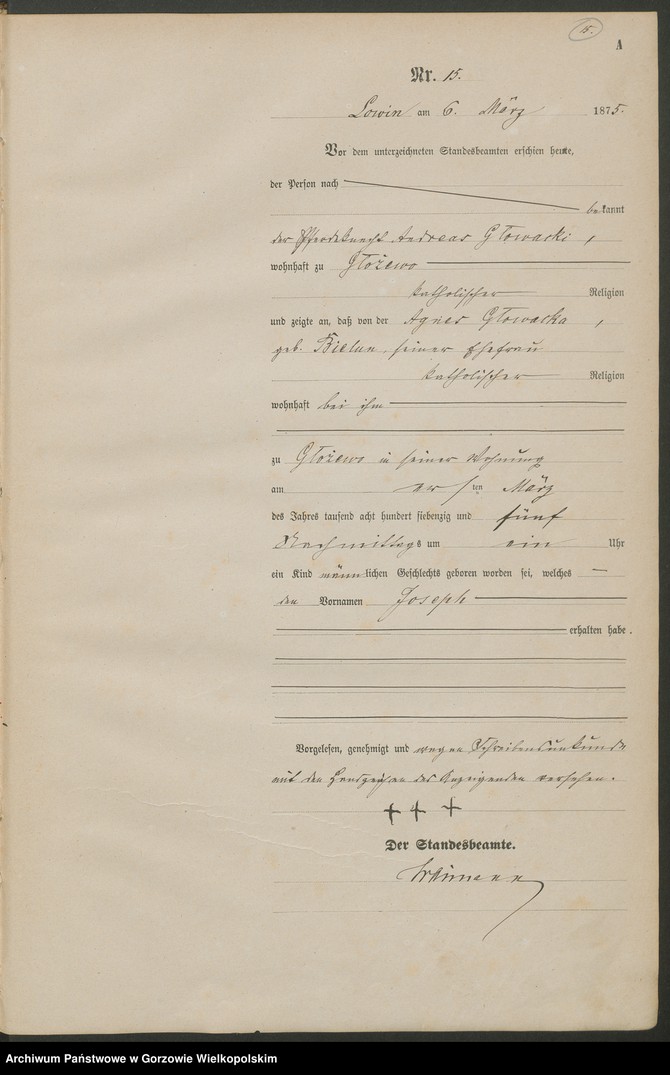 15.
A
Nr. 15.
Lowin am 6. März 1875.
Vor dem unterzeichneten Standesbeamten erschien heute,
der Person nach
bekannt
der Pferdeknecht Andreas Głowacki,
wohnhaft zu Głożewo
katholischer Religion
und zeigte an, daß von der Agnes Głowacka,
geb. Bielun, seiner Ehefrau
katholischer Religion
wohnhaft bei ihm
zu Głożewo in seiner Wohnung
am ten März
des Jahres tausend acht hundert siebenzig und fünf
Nachmittags um ein Uhr
ein Kind männlichen Geschlechts geboren worden sei, welches
den Vornamen Joseph
erhalten habe.
Vorgelesen, genehmigt und wegen Schreibensunkunde
mit den Handzeichen des Anzeigenden versehen.
+ + +
Der Standesbeamte.
Archiwum Państwowe w Gorzowie Wielkopolskim